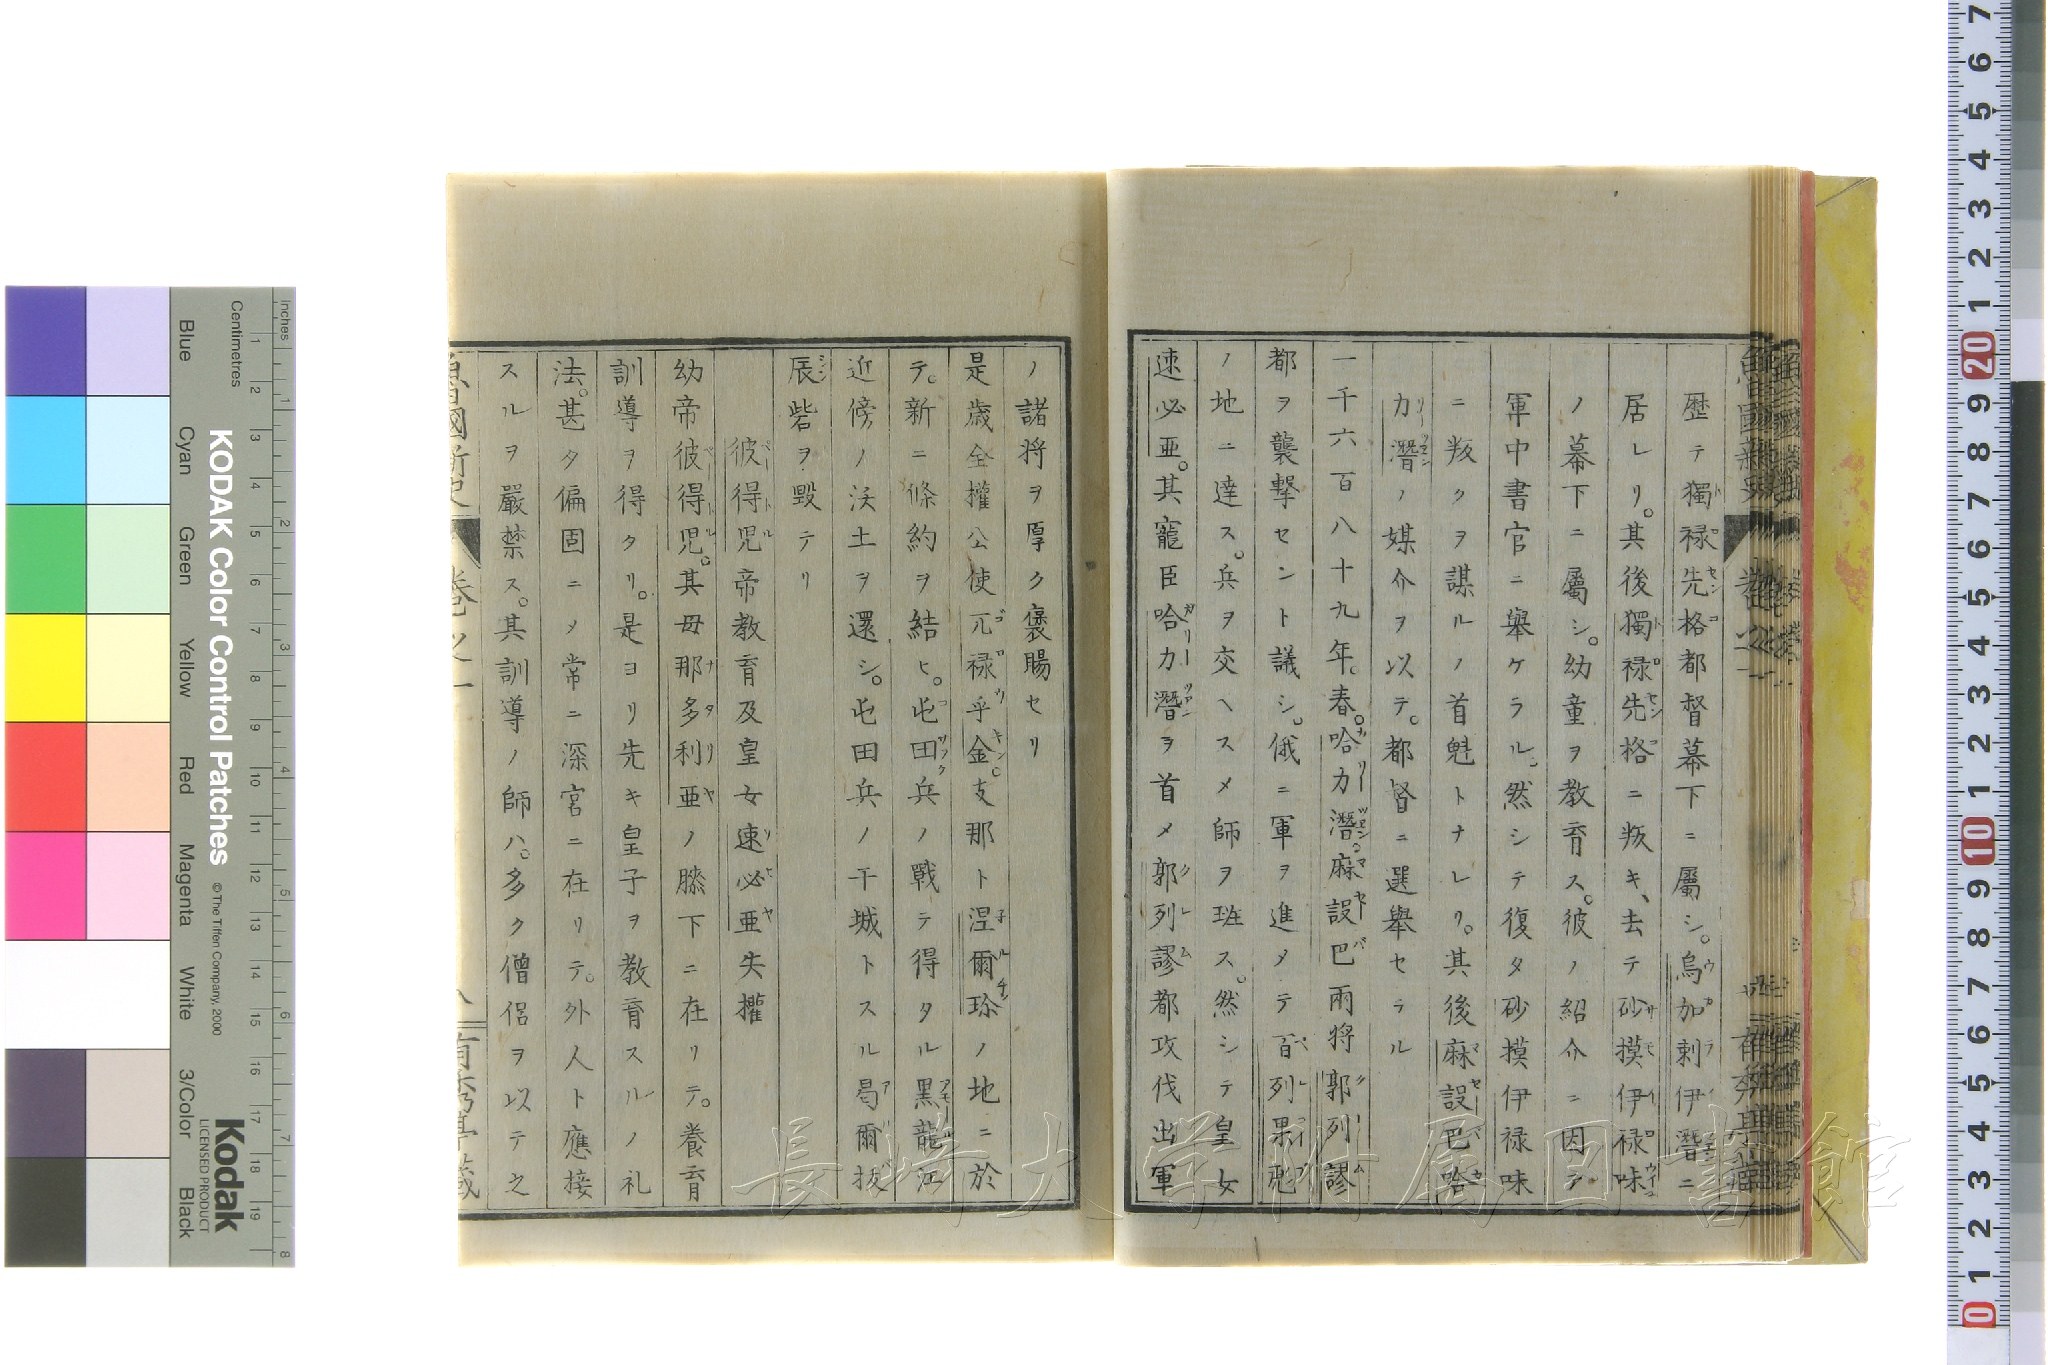 歴テ獨禄先格都督幕下ニ屬シ。烏加剌伊潛ニ
居レリ。其後獨禄先格ニ叛キ、去テ砂摸伊禄味
ノ幕下ニ屬シ。幼童ヲ教育ス。彼ノ紹介ニ因テ
軍中書官ニ舉ケラル。然シテ復タ砂摸伊禄味
ニ叛クヲ謀ルノ首魁トナレリ。其後麻設巴哈
力潛ノ媒介ヲ以テ。都督ニ選舉セラル
一千六百八十九年。春。哈力潛。麻設巴兩将郭列謬
都ヲ襲撃セント議シ。俄ニ軍ヲ進メテ百列果彪
ノ地ニ達ス。兵ヲ交ヘスメ師ヲ班ス。然シテ皇女
速必亜。其寵臣哈力潛ヲ首メ郭列謬都攻伐出軍
ノ諸将ヲ厚ク褒賜セリ
是歳全權公使兀禄乎金。支那ト涅爾珍ノ地ニ於
テ。新ニ條約ヲ結ヒ。屯田兵ノ戰テ得タル黒龍江
近傍ノ沃土ヲ還シ。屯田兵ノ干城トスル曷爾拔
辰砦ヲ毀テリ
彼得児帝教育及皇女速必亜失權
幼帝彼得児。其母那多利亜ノ膝下ニ在リテ。養育
訓導ヲ得タリ。是ヨリ先キ皇子ヲ教育スルノ礼
法。甚タ偏固ニメ常ニ深宮ニ在リテ。外人ト應接
スルヲ嚴禁ス。其訓導ノ師ハ。多ク僧侶ヲ以テ之
魯國新史 巻之一 八
長崎大学附属図書館
KODAK Color Control Patches
© The Tiffen Company, 2000
Kodak
LICENSED PRODUCT
Centimetres
Inches
Blue Cyan Green Yellow Red Magenta White 3/Color Black